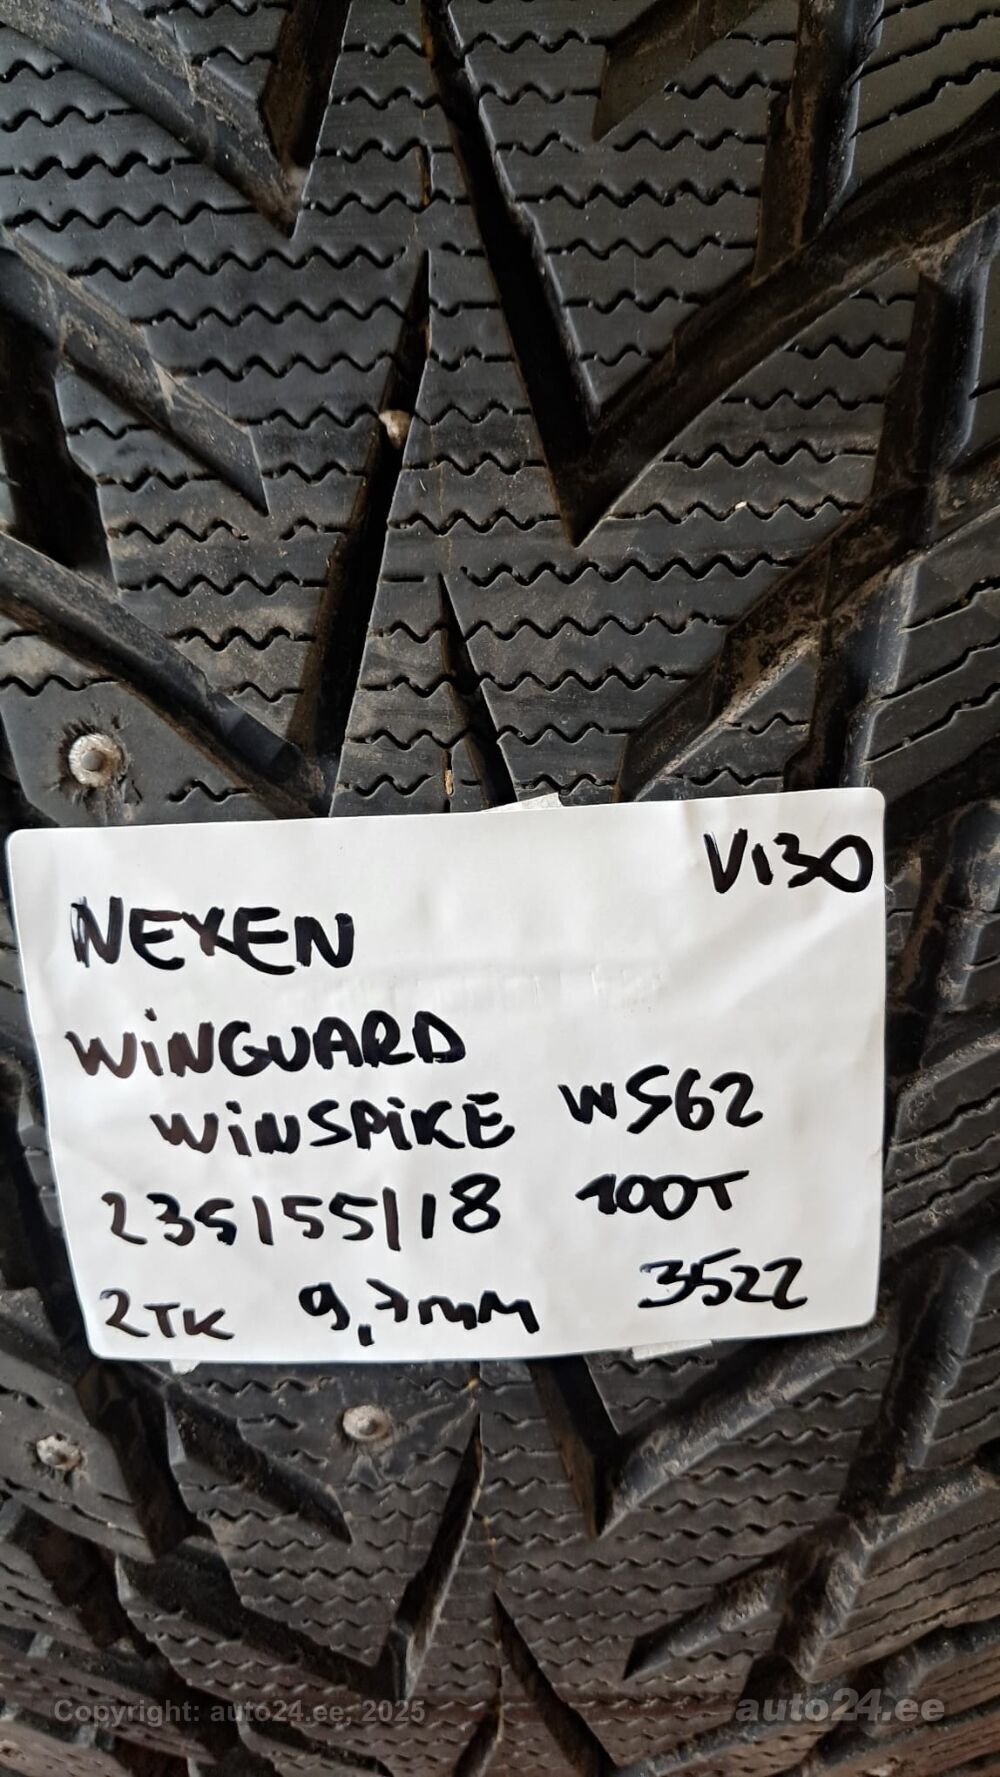 V130
NEXEN
WiNGUARD
WiNSPiKE WS62
235/55/18 100T
2TK 9,7mm 3522
Copyright: auto24.ee, 2025
auto24.ee